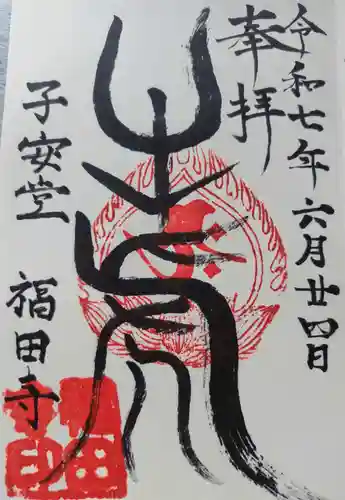 令和七年六月廿四日
奉拝
子安堂
福田寺